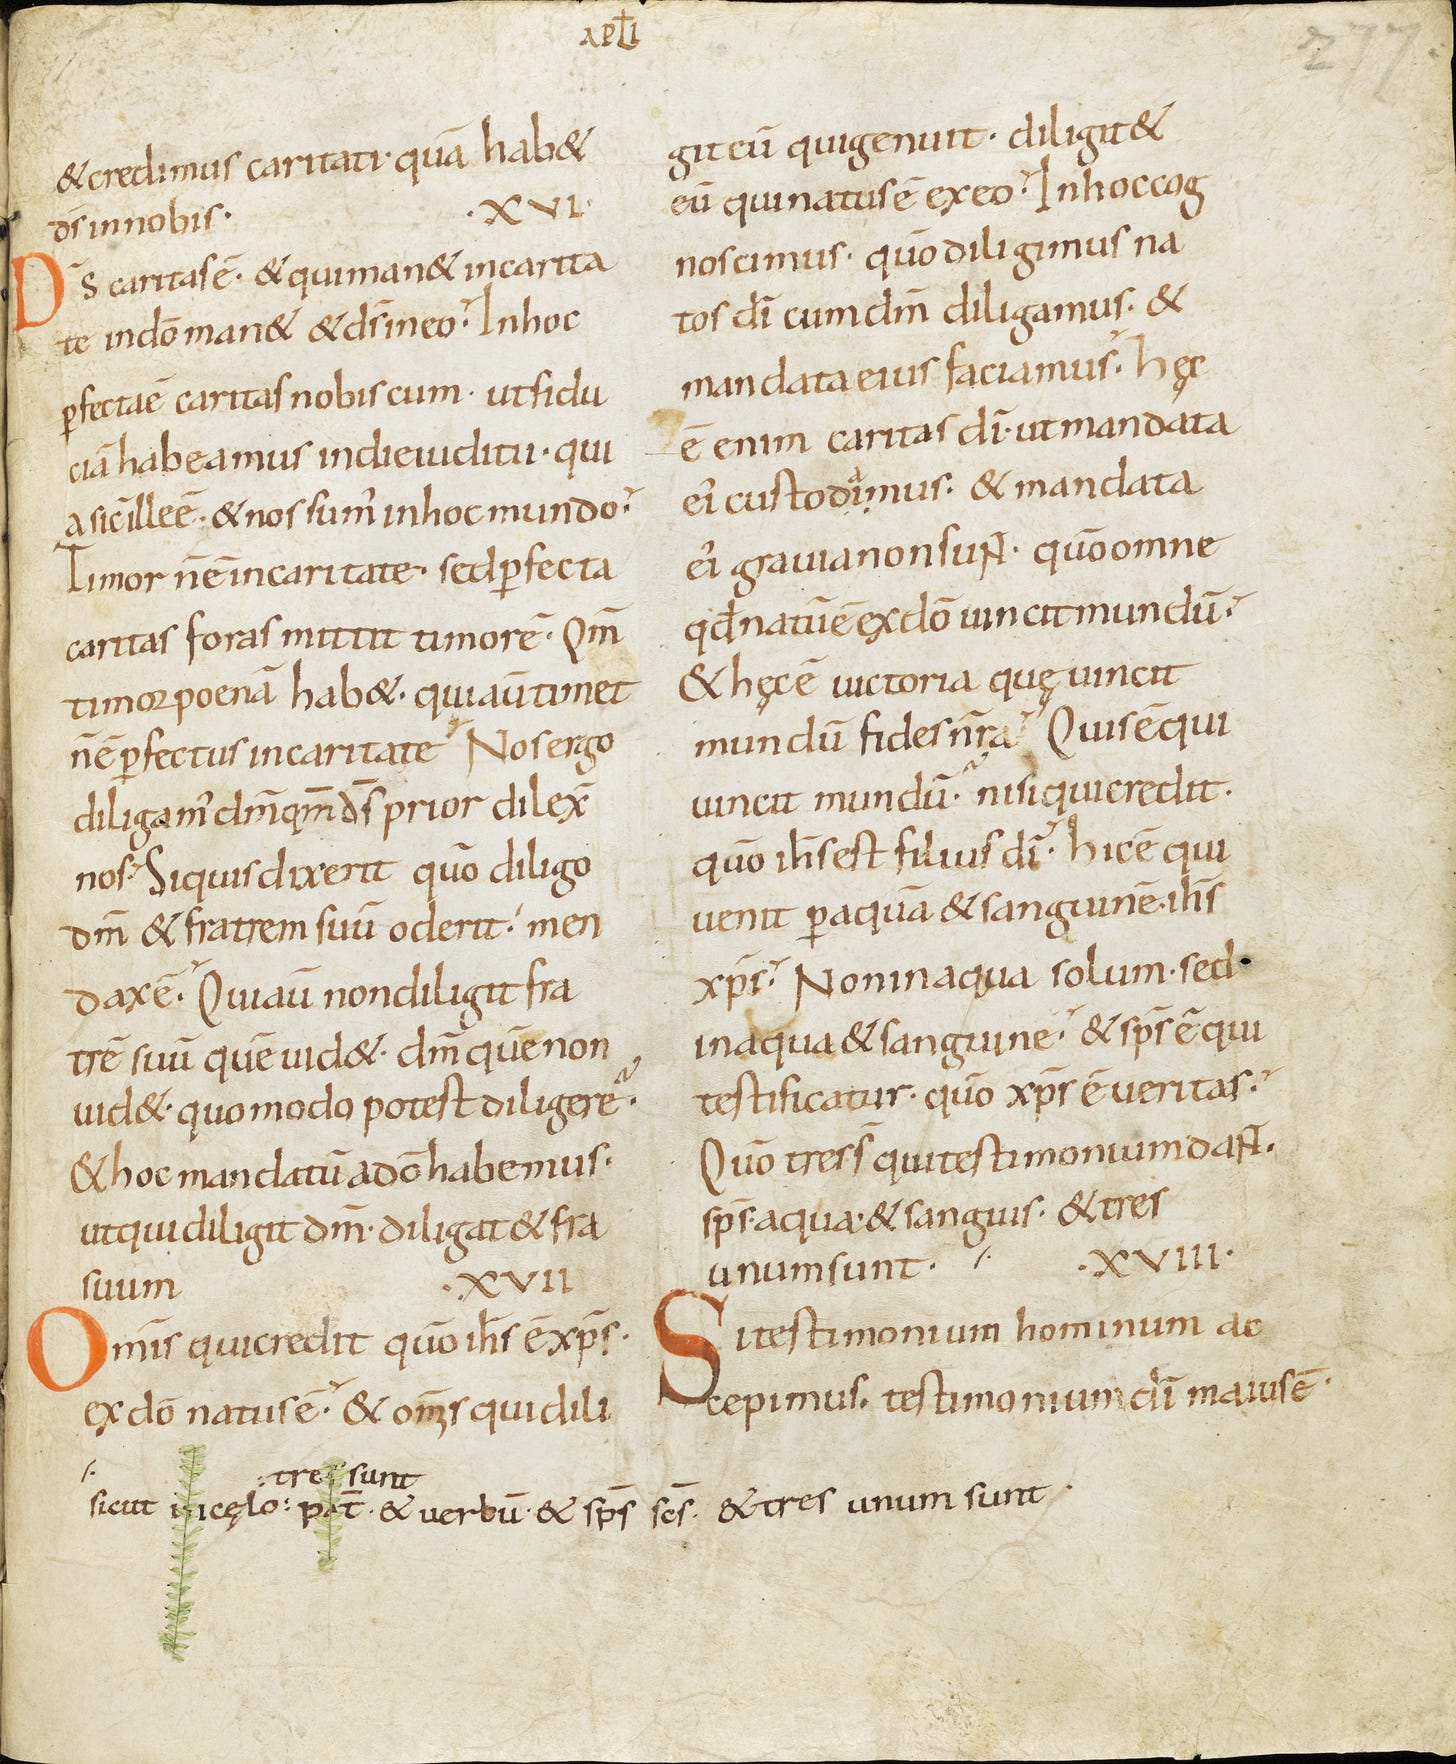 APŁI
277.
& credimus caritati· quā hab&
d̄s innobis· ·XVI·
D̄S caritas ē· & quiman& incarita
te indō man& & d̄s ineo· Inhoc
ꝑfecta ē caritas nobiscum· utfidu
ciā habeamus indie iudicii· qui
a sic ille ē· & nos sum᾽ inhoc mundo·
Timor n̄ ē incaritate· sed ꝑfecta
caritas foras mittit timorē· Qm̄
timor poenā hab&· qui aū timet
n̄ ē ꝑfectus incaritate Nos ergo
diligam᾽ dm̄ qm̄ d̄s prior dilex̄
nos· Siquis dixerit quō diligo
dm̄ & fratrem suū oderit· men
dax ē· Qui aū non diligit fra
trē suū quē uid&· dm̄ quē non
uid&· quomodo potest diligere·
& hoc mandatū adō habemus·
ut qui diligit dm̄· diligat & fra
suum ·XVII
Om̄is quicredit quō ih̄s ē xp̄s·
ex dō natus ē· & om̄s qui dili
git eū qui genuit· diligit &
eū qui natus ē ex eo· Inhoc cog
noscimus· quō diligimus na
tos dī cum dm̄ diligamus· &
mandata eius faciamus· hęc
ē enim caritas dī· ut mandata
ei᾽ custodiamus· & mandata
ei᾽ grauia non sunt· quō omne
qđ natū ē ex dō uincit mundū·
& hęc ē uictoria quę uincit
mundū fides nr̄a Quis ē qui
uincit mundū· nisi qui credit·
quō ih̄s est filius dī· hic ē qui
uenit ꝑ aquā & sanguinē· ih̄s
xp̄s· Non in aqua solum· sed·
in aqua & sanguine· & sp̄s ē qui
testificatur· quō xp̄s ē ueritas·
Quō tres s̄ qui testimonium dant·
sp̄s· aqua· & sanguis· & tres
unum sunt· ⸍· ·XVIII·
Si testimonium hominum ac
cepimus· testimonium dī maius ē·
⸍· : tres sunt
sicut in cęlo: pat̄· & uerbū· & sp̄s sc̄s· & tres unum sunt·